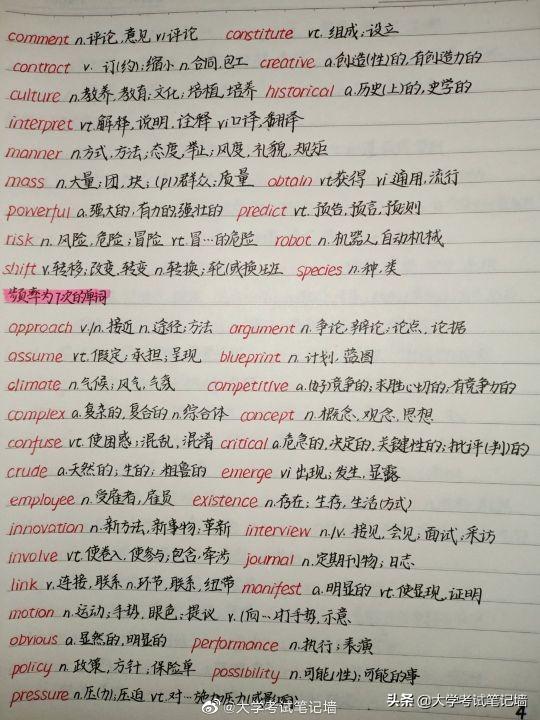 comment n.评论,意见 vi评论 constitute vt. 组成;设立
contract v. 订(约);缩小 n.合同,包工 creative a.创造(性)的,有创造力的
culture n.教养,教育;文化;培植,培养 historical a.历史(上)的,史学的
interpret vt.解释,说明,诠释 vi口译,翻译
manner n.方式,方法;态度,举止;风度,礼貌,规矩
mass n.大量;团,块;(pl)群众;质量 obtain vt获得 vi 通用,流行
powerful a.强大的,有力的,强壮的 predict vt. 预告,预言,预测
risk n. 风险,危险;冒险 vt.冒…的危险 robot n.机器人,自动机械
shift v.转移;改变,转变 n.转换;轮(或换)班 species n.种,类
频率为7次的单词
approach v./n.接近 n.途径;方法 argument n.争论,辩论;论点,论据
assume vt.假定;承担;呈现 blueprint n.计划,蓝图
climate n.气候;风气,气氛 competitive a.(好)竞争的;求胜心切的;有竞争力的
complex a.复杂的,复合的 n.综合体 concept n.概念,观念,思想
confuse vt.使困惑;混乱,混淆 critical a.危急的,决定的,关键性的;批评(判)的
crude a.天然的;生的;粗鲁的 emerge vi出现;发生,显露
employee n.受雇者,雇员 existence n.存在;生存,生活(方式)
innovation n.新方法,新事物;革新 interview n./v. 接见,会见;面试;采访
involve vt.使卷入,使参与;包含,牵涉 journal n.定期刊物;日志
link v.连接,联系 n.环节,联系,纽带 manifest a.明显的 vt.使显现,证明
motion n.运动;手势,眼色;提议 v.(向…)打手势,示意
obvious a.显然的,明显的 performance n.执行;表演
policy n.政策,方针;保险单 possibility n.可能(性);可能的事
pressure n.压(力);压迫 vt.对…施加压力(或影响)
@大学考试笔记墙
头条 @大学考试笔记墙
4